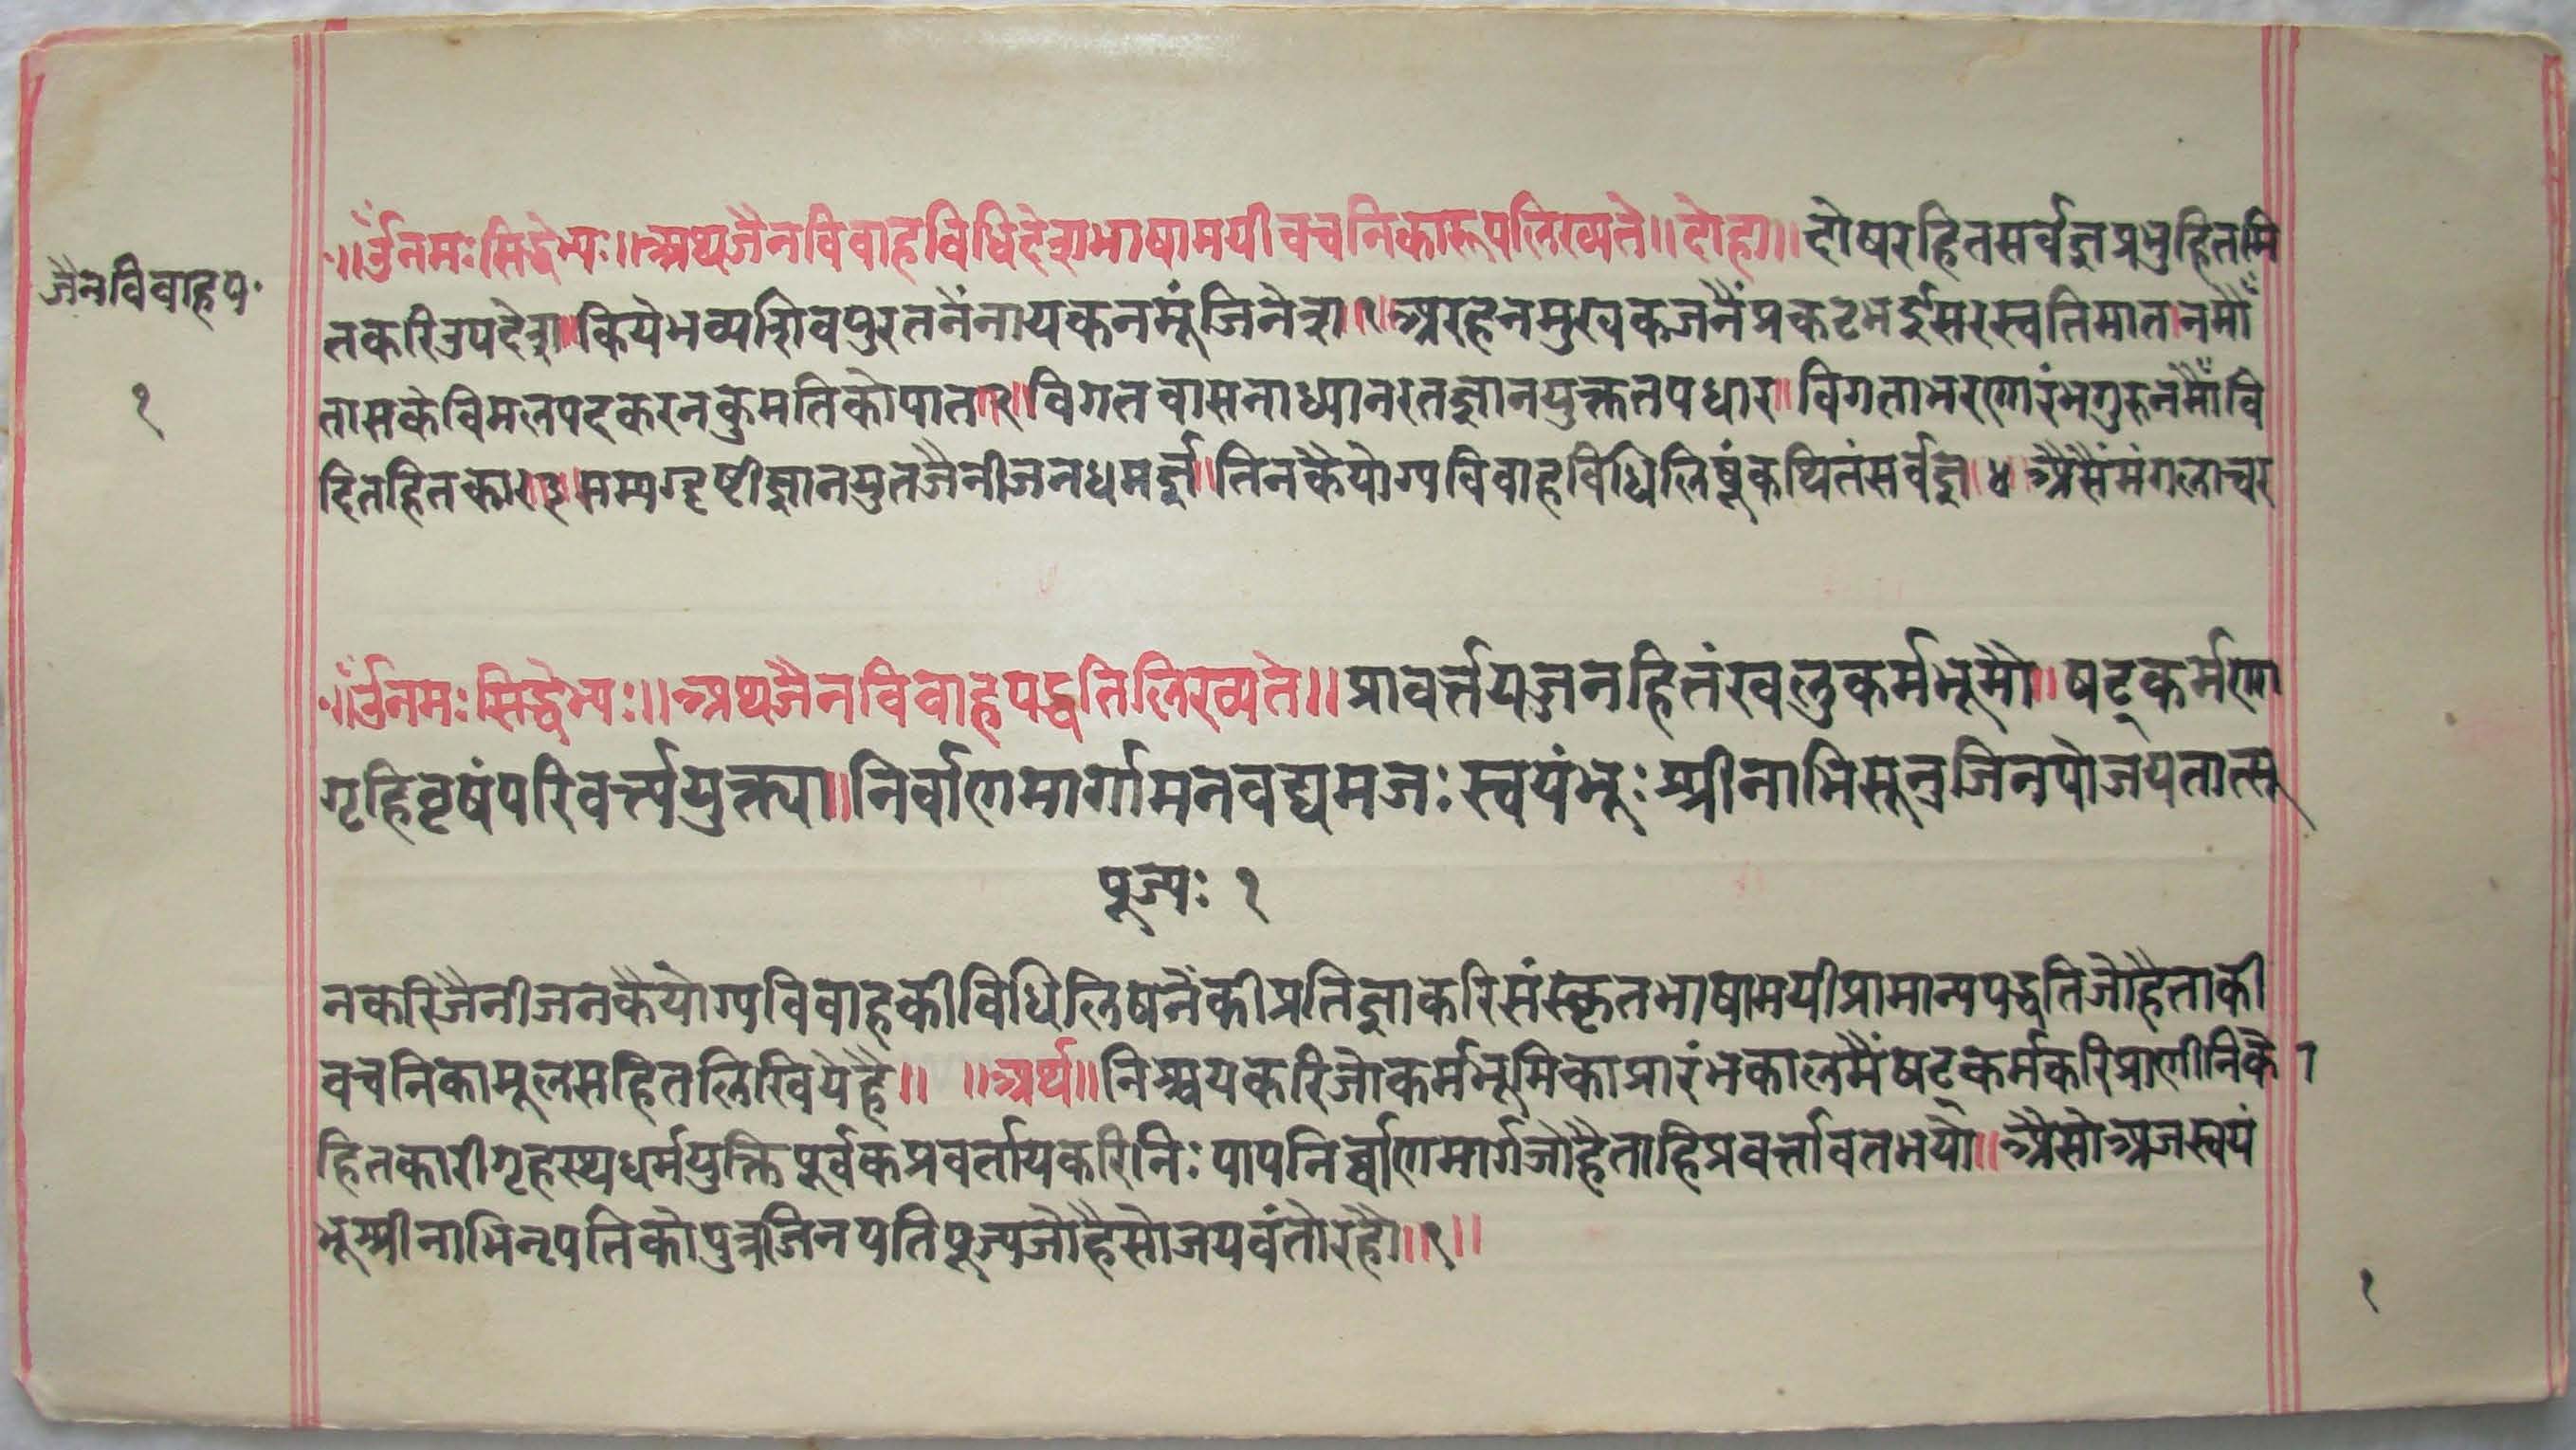 जैनविवाहप॰
१
॥ॐनमःसिद्धेभ्यः॥अथजैनविवाहविधिदेशभाषामयीवचनिकारूपलिख्यते॥दोहा॥दोषरहितसर्वज्ञप्रभुहितमि
तकरिउपदेश॥कियेभव्यशिवपुरतनैंनायकनमूंजिनेश।१।अरहनमुखकजनैंप्रकटभईसरस्वतिमात।नमौं
तासकेविमलपदकरनकुमतिकोपात।२।विगतवासनाध्यानरतज्ञानयुक्ततपधार॥विगताभरणारंभगुरुनमौंवि
हितहितकार।३।सम्यग्दृष्टीज्ञानयुतजैनीजनधमर्ज्ञ॥तिनकैयोग्यविवाहविधिलिषूंकथितंसर्वज्ञ।४।अैसैंमंगलाचर
॥ॐनमःसिद्धेभ्यः॥अथजैनविवाहपद्धतिलिख्यते॥प्रावर्त्तयज्जनहितंखलुकर्मभूमौ॥षट्कर्मणा
गृहिवृषंपरिवर्त्त्ययुक्त्या॥निर्वाणमार्गमनवद्यमजःस्वयंभूःश्रीनाभिसूनुजिनपोजयतात्सू
पूज्यः १
नकरिजैनीजनकैयोग्यविवाहकीविधिलिषनैंकीप्रतिज्ञाकरिसंस्कृतभाषामयीप्रामान्यपद्धतिजोहैताकी
वचनिकामूलसहितलिखियेहै॥ ॥अर्थ॥निश्चयकरिजोकर्मभूमिकाप्रारंभकालमैंषट्कर्मकरिप्राणीनिकै
हितकारीगृहस्थधर्मयुक्तिपूर्वकप्रवर्तायकरिनिःपापनिर्ब्वाणमार्गजोहैताहिप्रवर्त्तावतभयो॥अैसोअजस्वयं
भूश्रीनाभिनृपतिकोपुत्रजिनपतिपूज्यजोहैसोजयवंतोरहौ॥१॥
१